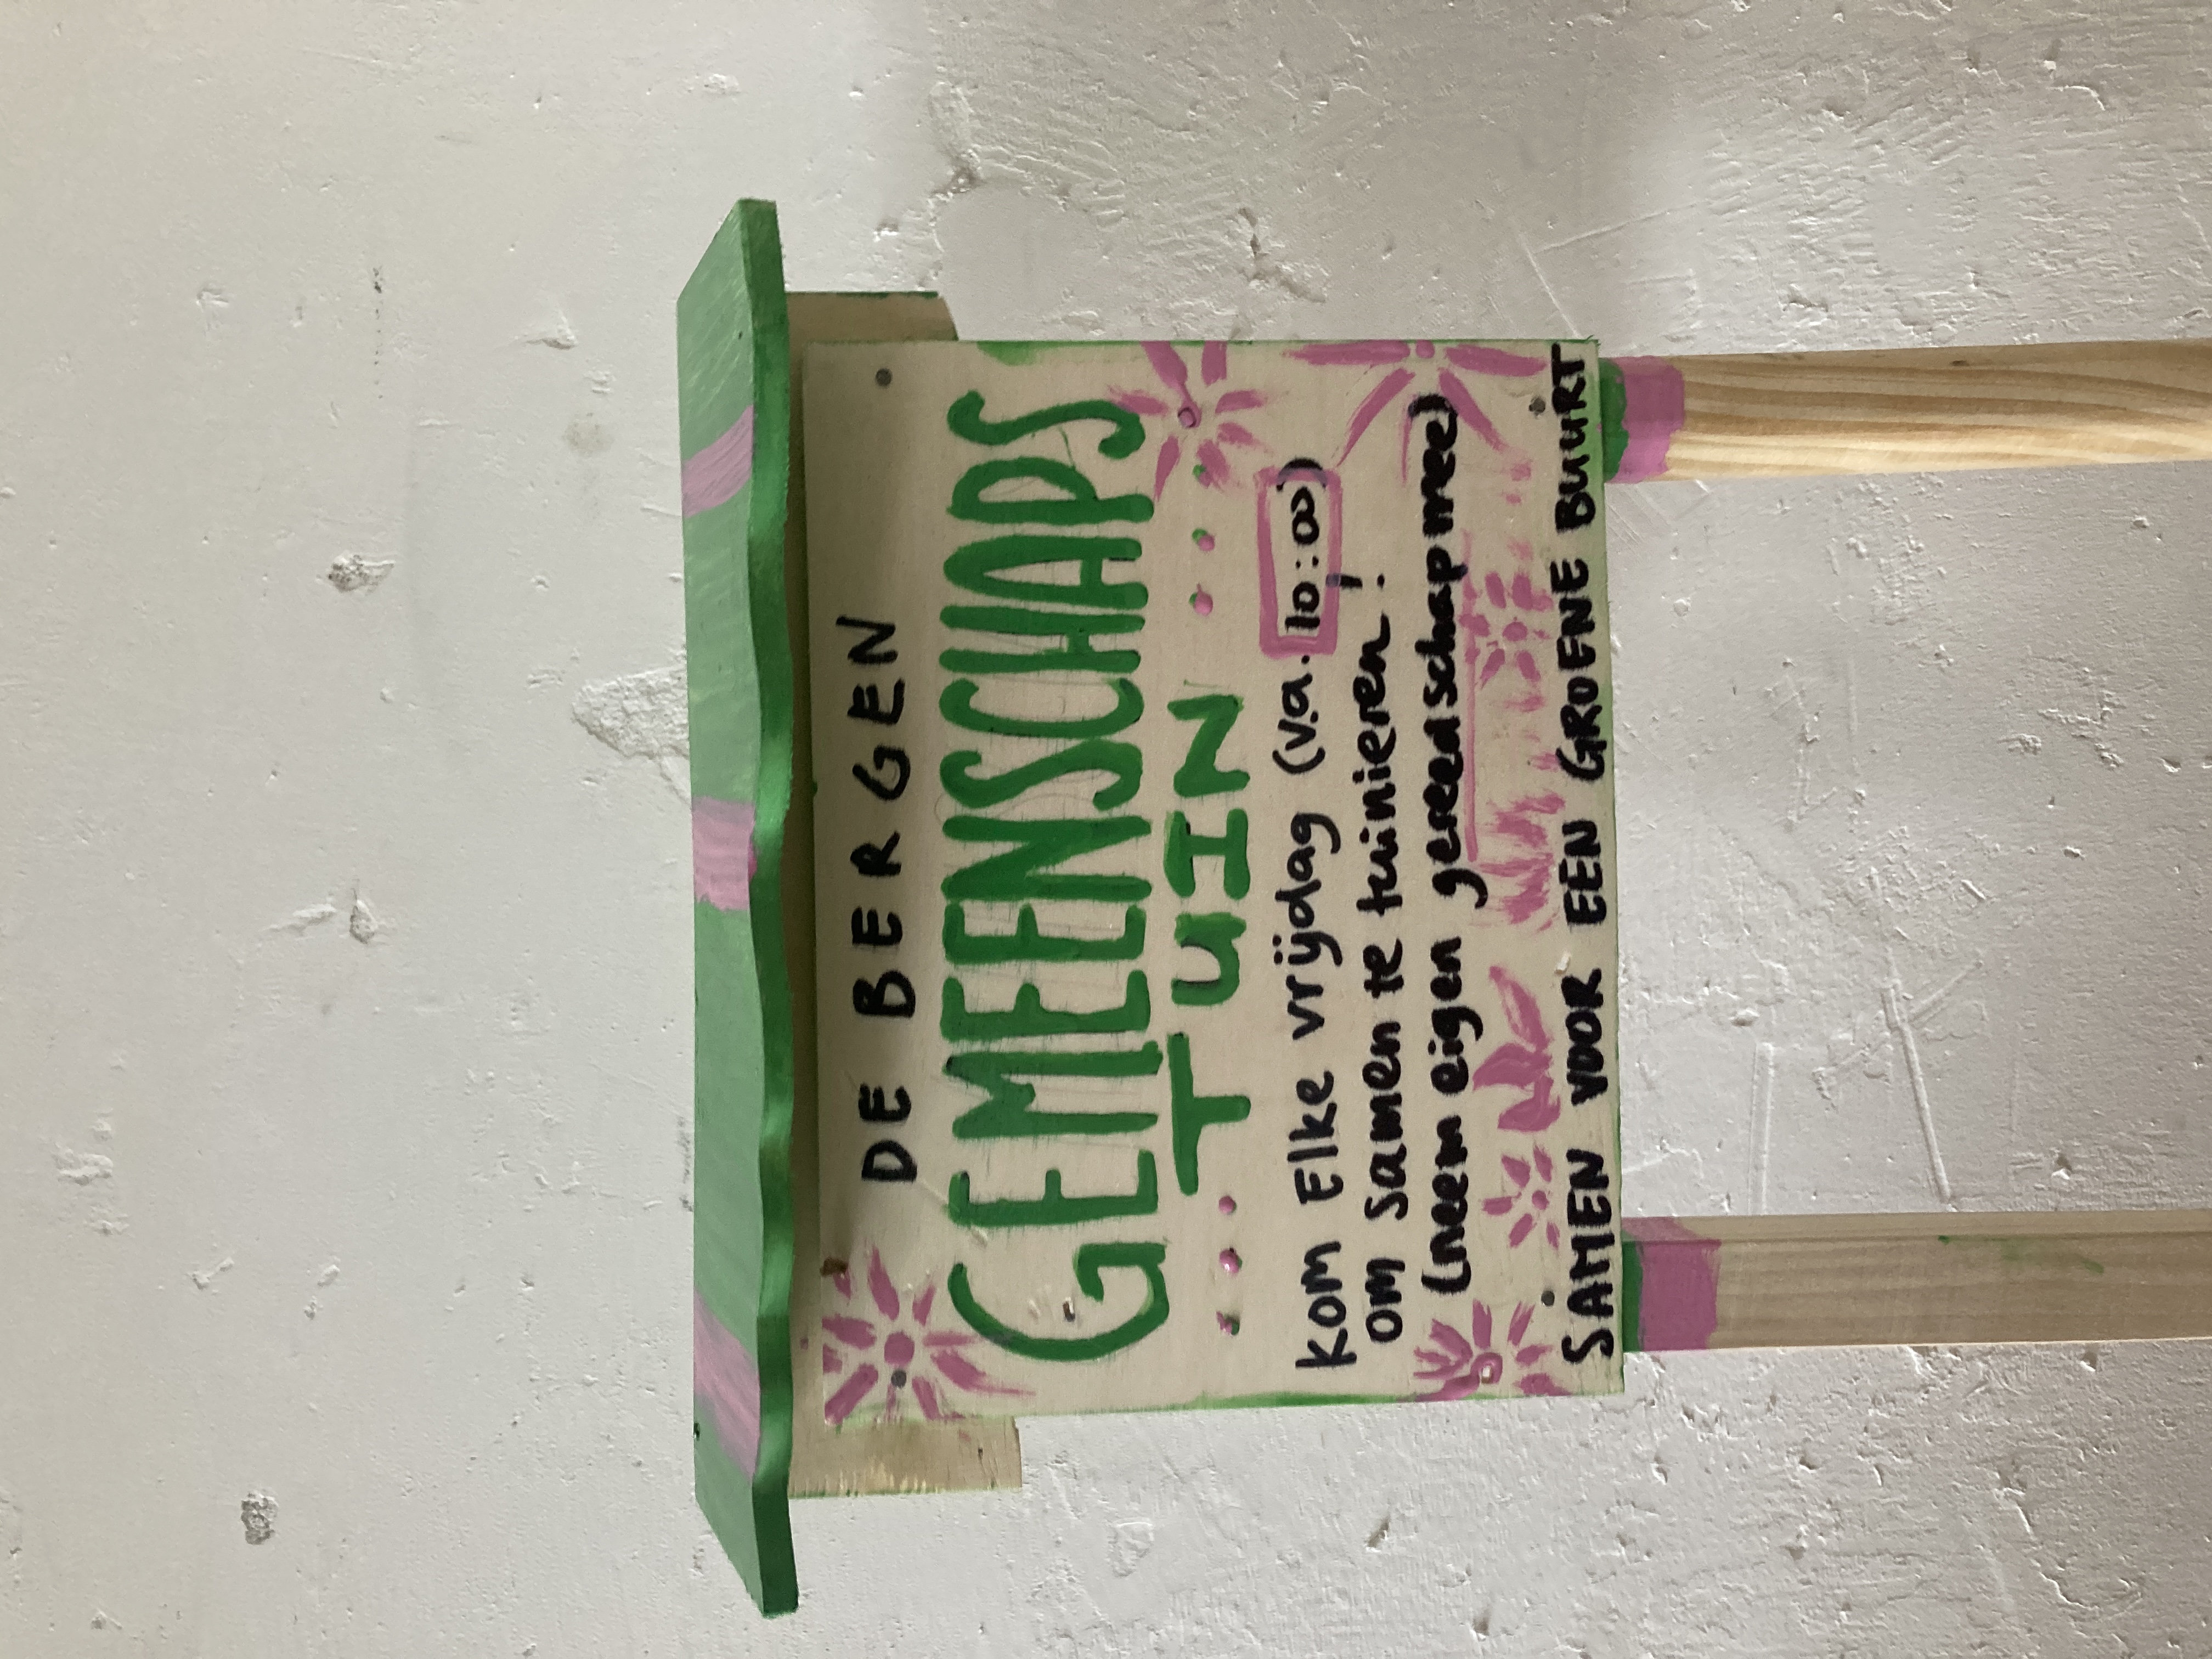 DE BERGEN
GEMEENSCHAPS
TuIN
kom Elke vrijdag (v.a. 10:00)
om samen te tuinieren!
(neem eigen gereedschap mee)
SAMEN VOOR EEN GROENE BUURT